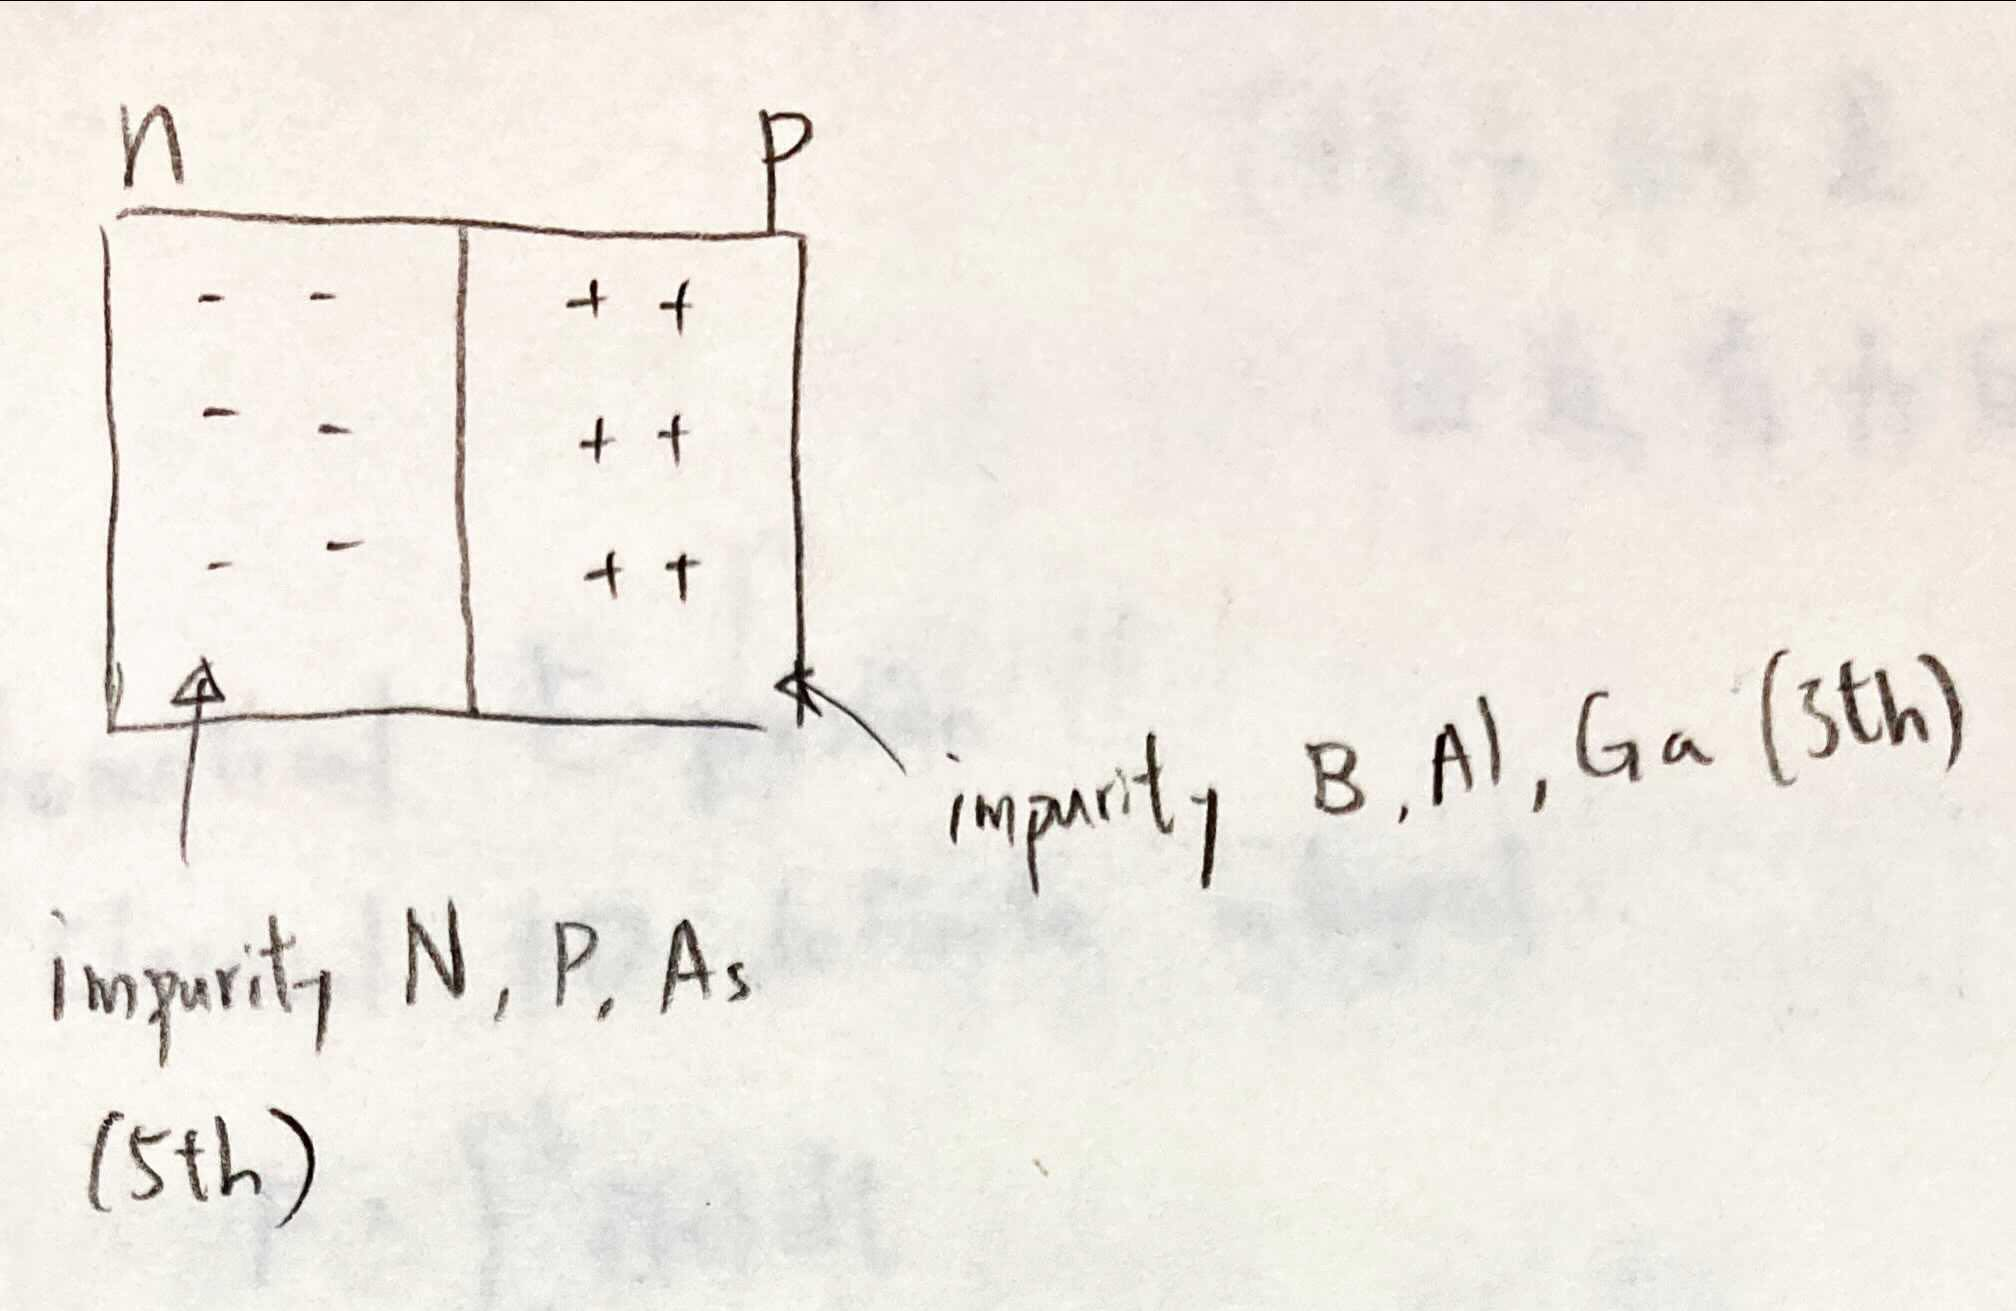 n P
- - + +
- - + +
- - + +
impurity B, Al, Ga (3th)
impurity N, P, As
(5th)